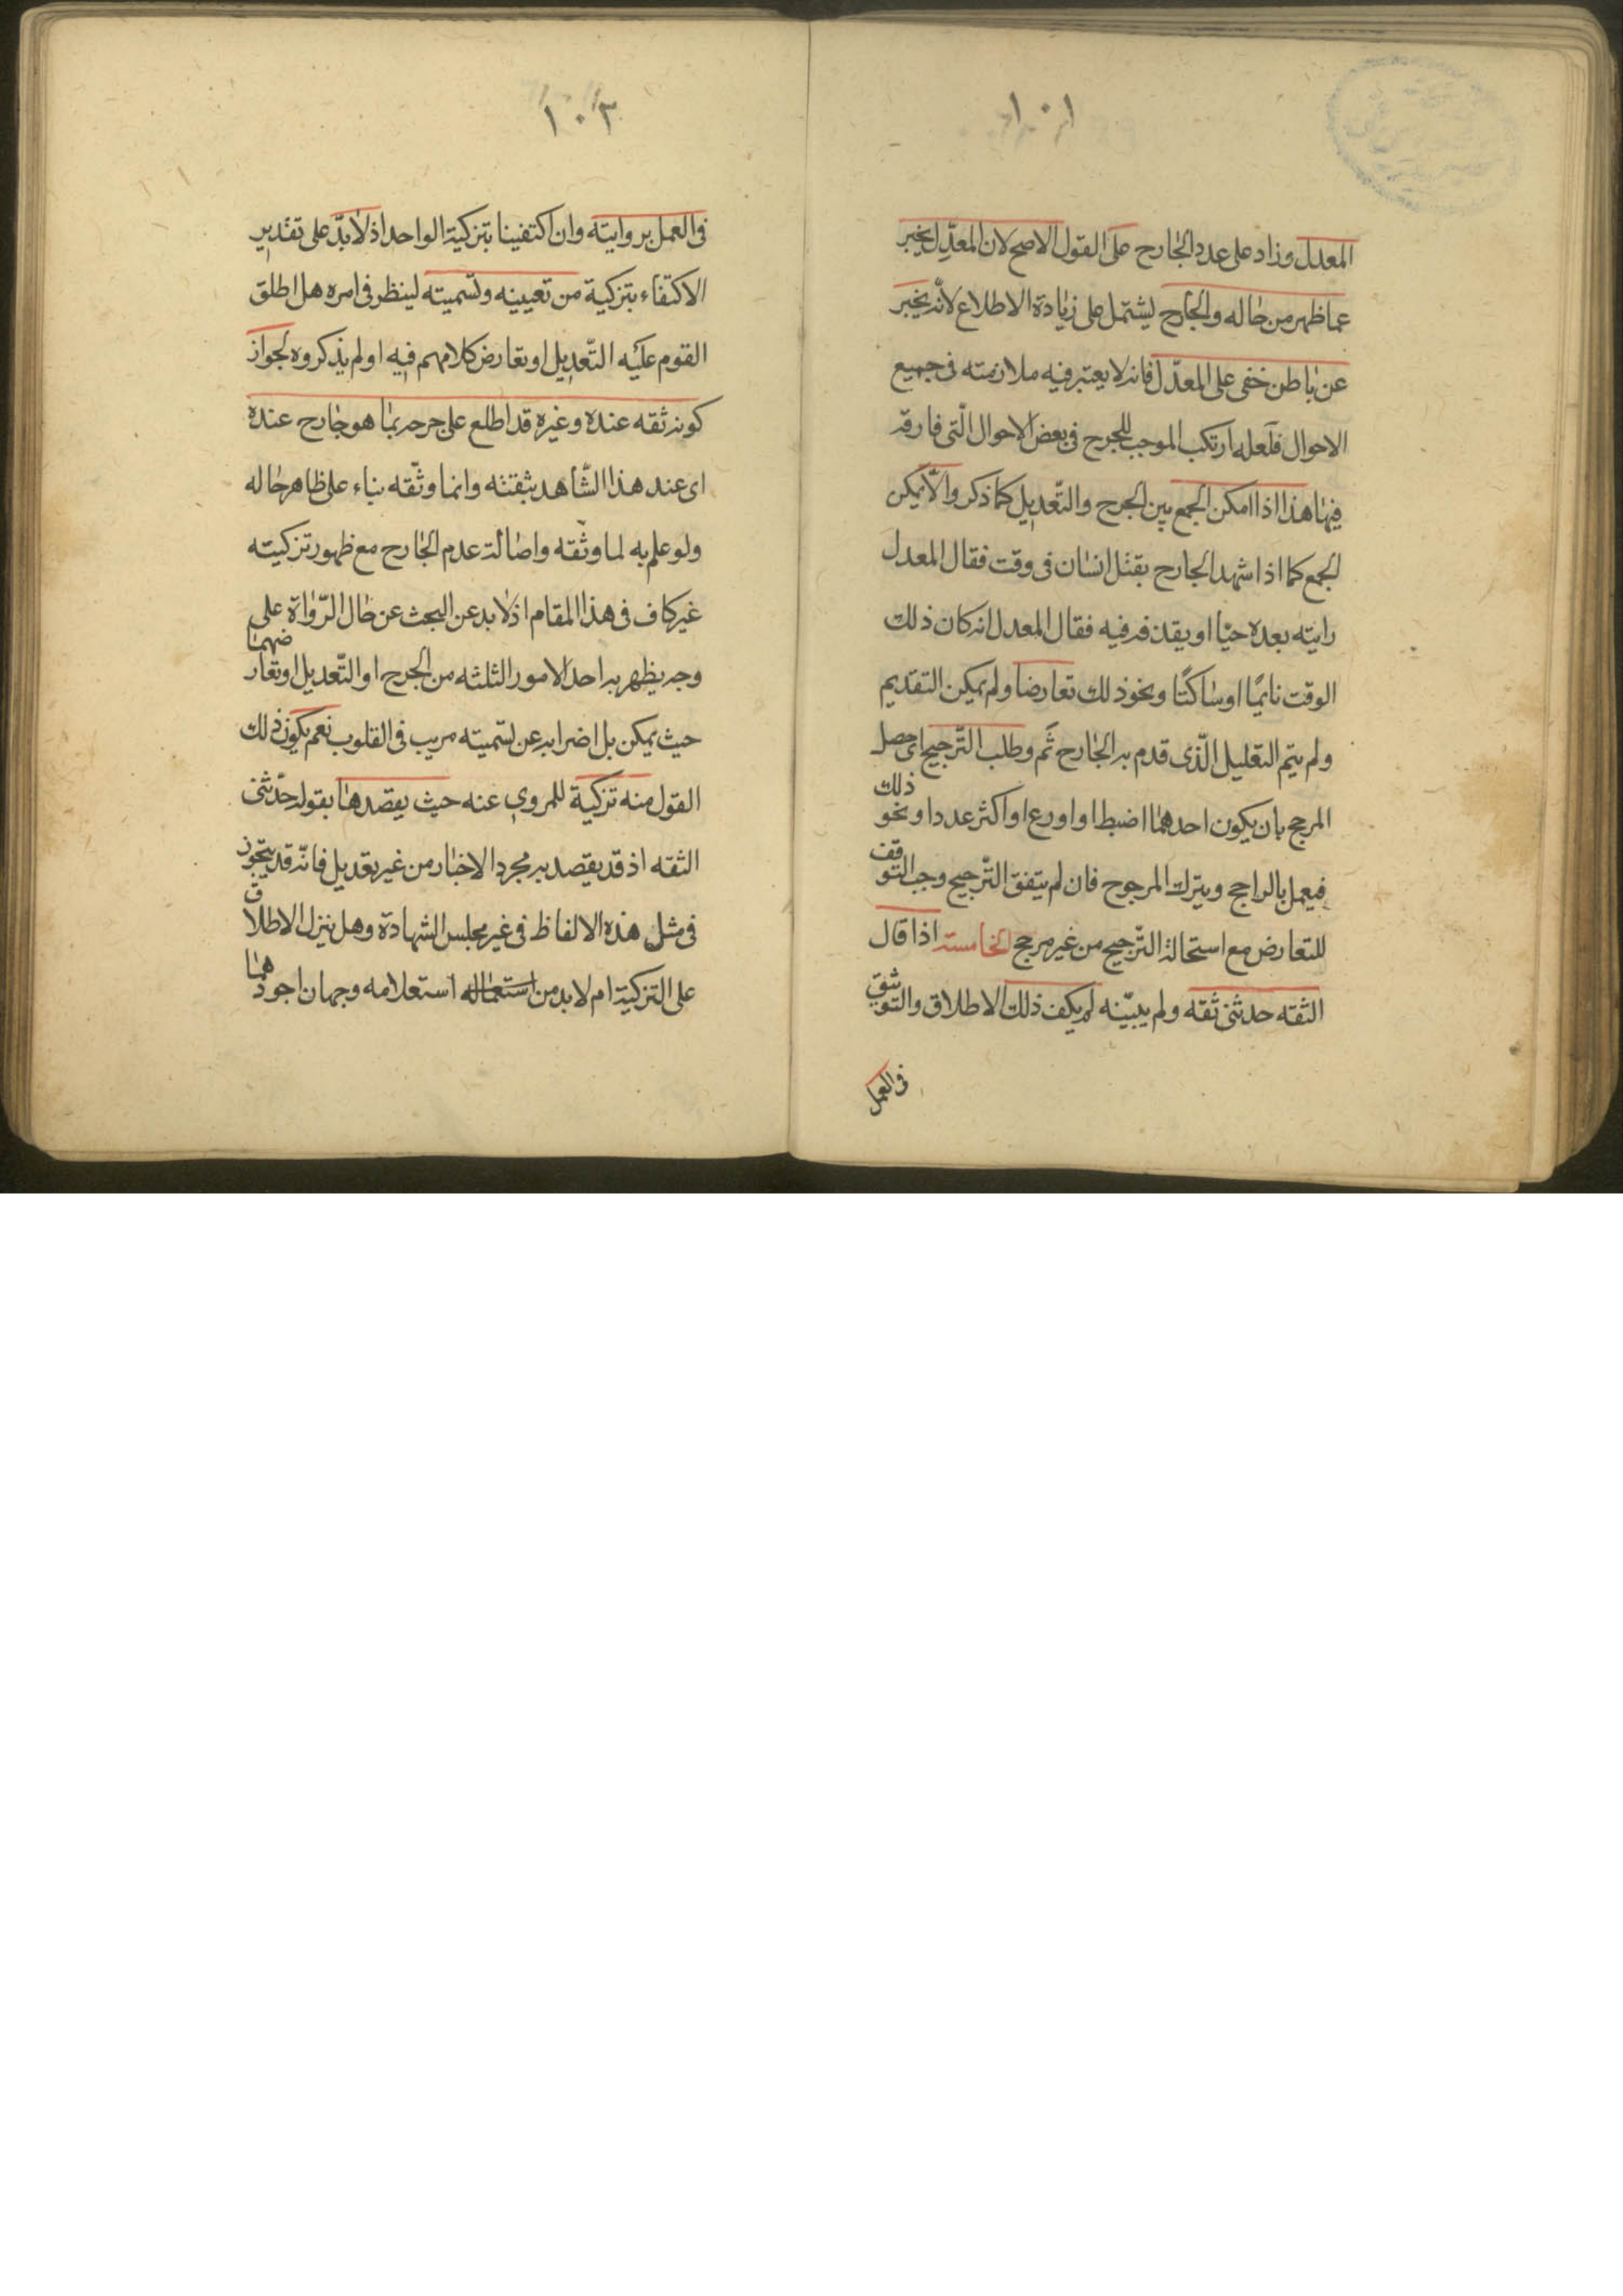 ١٠١
المعدل وزاد على عدد الجارح على القول الاصح لان المعدّل يخبر
عما ظهر من حاله والجارح يشتمل على زيادة الاطلاع لانّه يخبر
عن باطن خفى على المعدّل فانه لا يعتبر فيه ملازمته فى جميع
الاحوال فلعله ارتكب الموجب للجرح فى بعض الاحوال الّتى فارقه
فيها هذا اذا امكن الجمع بين الجرح والتّعديل كما ذكر والّا يمكن
الجمع كما اذا شهد الجارح بقتل انسان فى وقت فقال المعدل
رايته بعده حيّا او يقذفه فيه فقال المعدل انه كان ذلك
الوقت نايمًا او ساكتًا ونحو ذلك تعارضا ولم يمكن التقديم
ولم يتم التعليل الّذى قدم به الجارح ثَم وطلب التّرجيح اى حصل
المرجح بان يكون احدهما اضبط او اورع او اكثر عددا ونحو ذلك
فيعمل بالراجح ويترك المرجوح فان لم يتفق التّرجيح وجب التوقف
للتعارض مع استحالة التّرجيح من غير مرجح الخامسة اذا قال
الثقه حدثنى ثقه ولم يبيّنه لم يكف ذلك الاطلاق والتوثيق
فى العمل
١٠٣
فى العمل بروايته وان اكتفينا بتزكية الواحد اذ لا بدّ على تقدير
الاكتفاء بتزكية من تعيينه وتسميته لينظر فى امره هل اطلق
القوم عليه التّعديل او تعارض كلامهم فيه او لم يذكروه لجواز
كونه ثقه عنده وغيره قد اطلع على جرحه بما هو جارح عنده
اى عند هذا الشّاهد بثقته وانما وثّقه بناء على ظاهر حاله
ولو علم به لما وثقه واصالة عدم الجارح مع ظهور تزكيته
غير كاف فى هذا المقام اذ لا بد عن البحث عن حال الرّواة على
وجه يظهر به احد الامور الثلثه من الجرح او التّعديل او تعارضهما
حيث يمكن بل اضرابه عن تسميته مريب فى القلوب نعم يكون ذلك
القول منه تزكية للمروى عنه حيث يقصدها بقوله حدّثنى
الثقه اذ قد يقصد به مجرد الاخبار من غير تعديل فانّه قد يتجوز
فى مثل هذه الالفاظ فى غير مجلس الشهادة وهل ينزل الاطلاق
على التزكية ام لا بد من استعماله استعلامه وجهان اجودهما